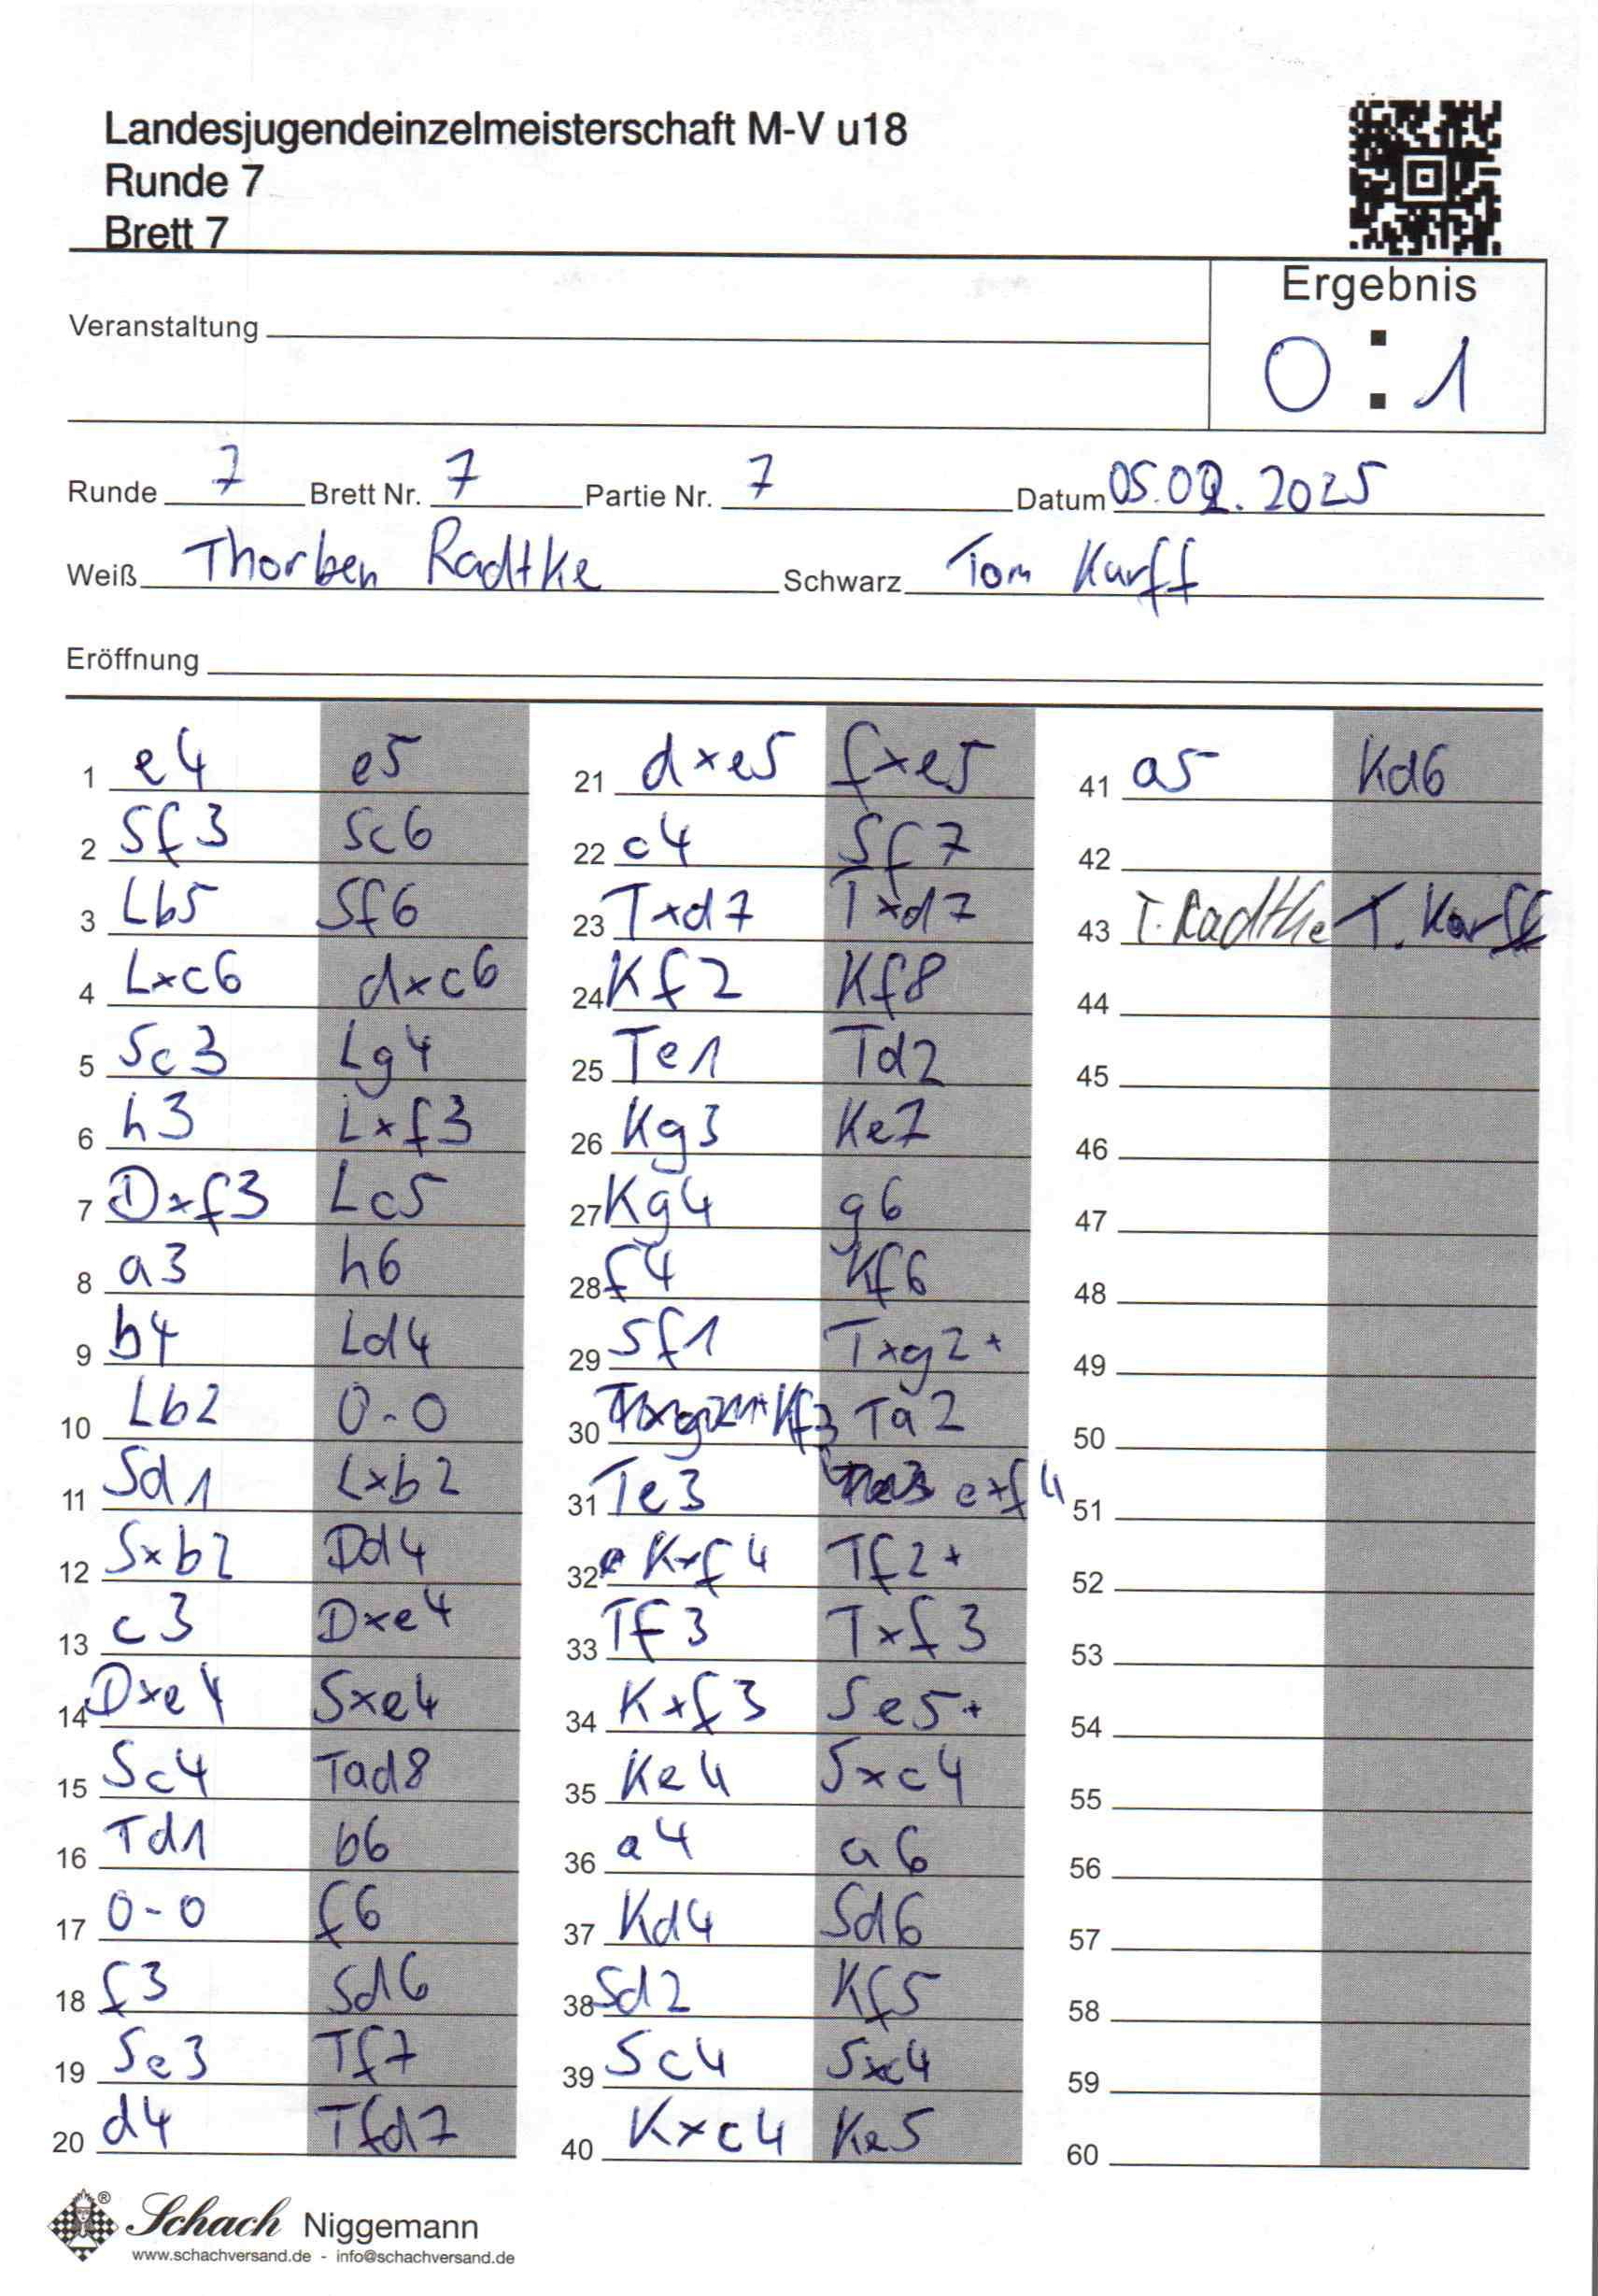 Landesjugendeinzelmeisterschaft M-V u18
Runde 7
Brett 7
Ergebnis
0 : 1
Veranstaltung
Runde 7 Brett Nr. 7 Partie Nr. 7 Datum 05.02.2025
Weiß Thorben Radtke Schwarz Tom Karff
Eröffnung
1 e4 e5
2 Sf3 Sc6
3 Lb5 Sf6
4 Lxc6 dxc6
5 Sc3 Lg4
6 h3 Lxf3
7 Dxf3 Lc5
8 a3 h6
9 b4 Ld4
10 Lb2 0-0
11 Sd1 Lxb2
12 Sxb2 Dd4
13 c3 Dxe4
14 Dxe4 Sxe4
15 Sc4 Tad8
16 Td1 b6
17 0-0 f6
18 f3 Sd6
19 Se3 Tf7
20 d4 Tfd7
21 dxe5 fxe5
22 c4 Sf7
23 Txd7 Txd7
24 Kf2 Kf8
25 Te1 Td2
26 Kg3 Ke7
27 Kg4 g6
28 f4 Kf6
29 Sf1 Txg2+
30 Kf3 Ta2
31 Te3 exf4
32 Kxf4 Tf2+
33 Tf3 Txf3
34 Kxf3 Se5+
35 Ke4 Sxc4
36 a4 a6
37 Kd4 Sd6
38 Sd2 Kf5
39 Sc4 Sxc4
40 Kxc4 Ke5
41 a5 Kd6
42
43 T. Radtke T. Karff
44
45
46
47
48
49
50
51
52
53
54
55
56
57
58
59
60
Schach Niggemann
www.schachversand.de - info@schachversand.de